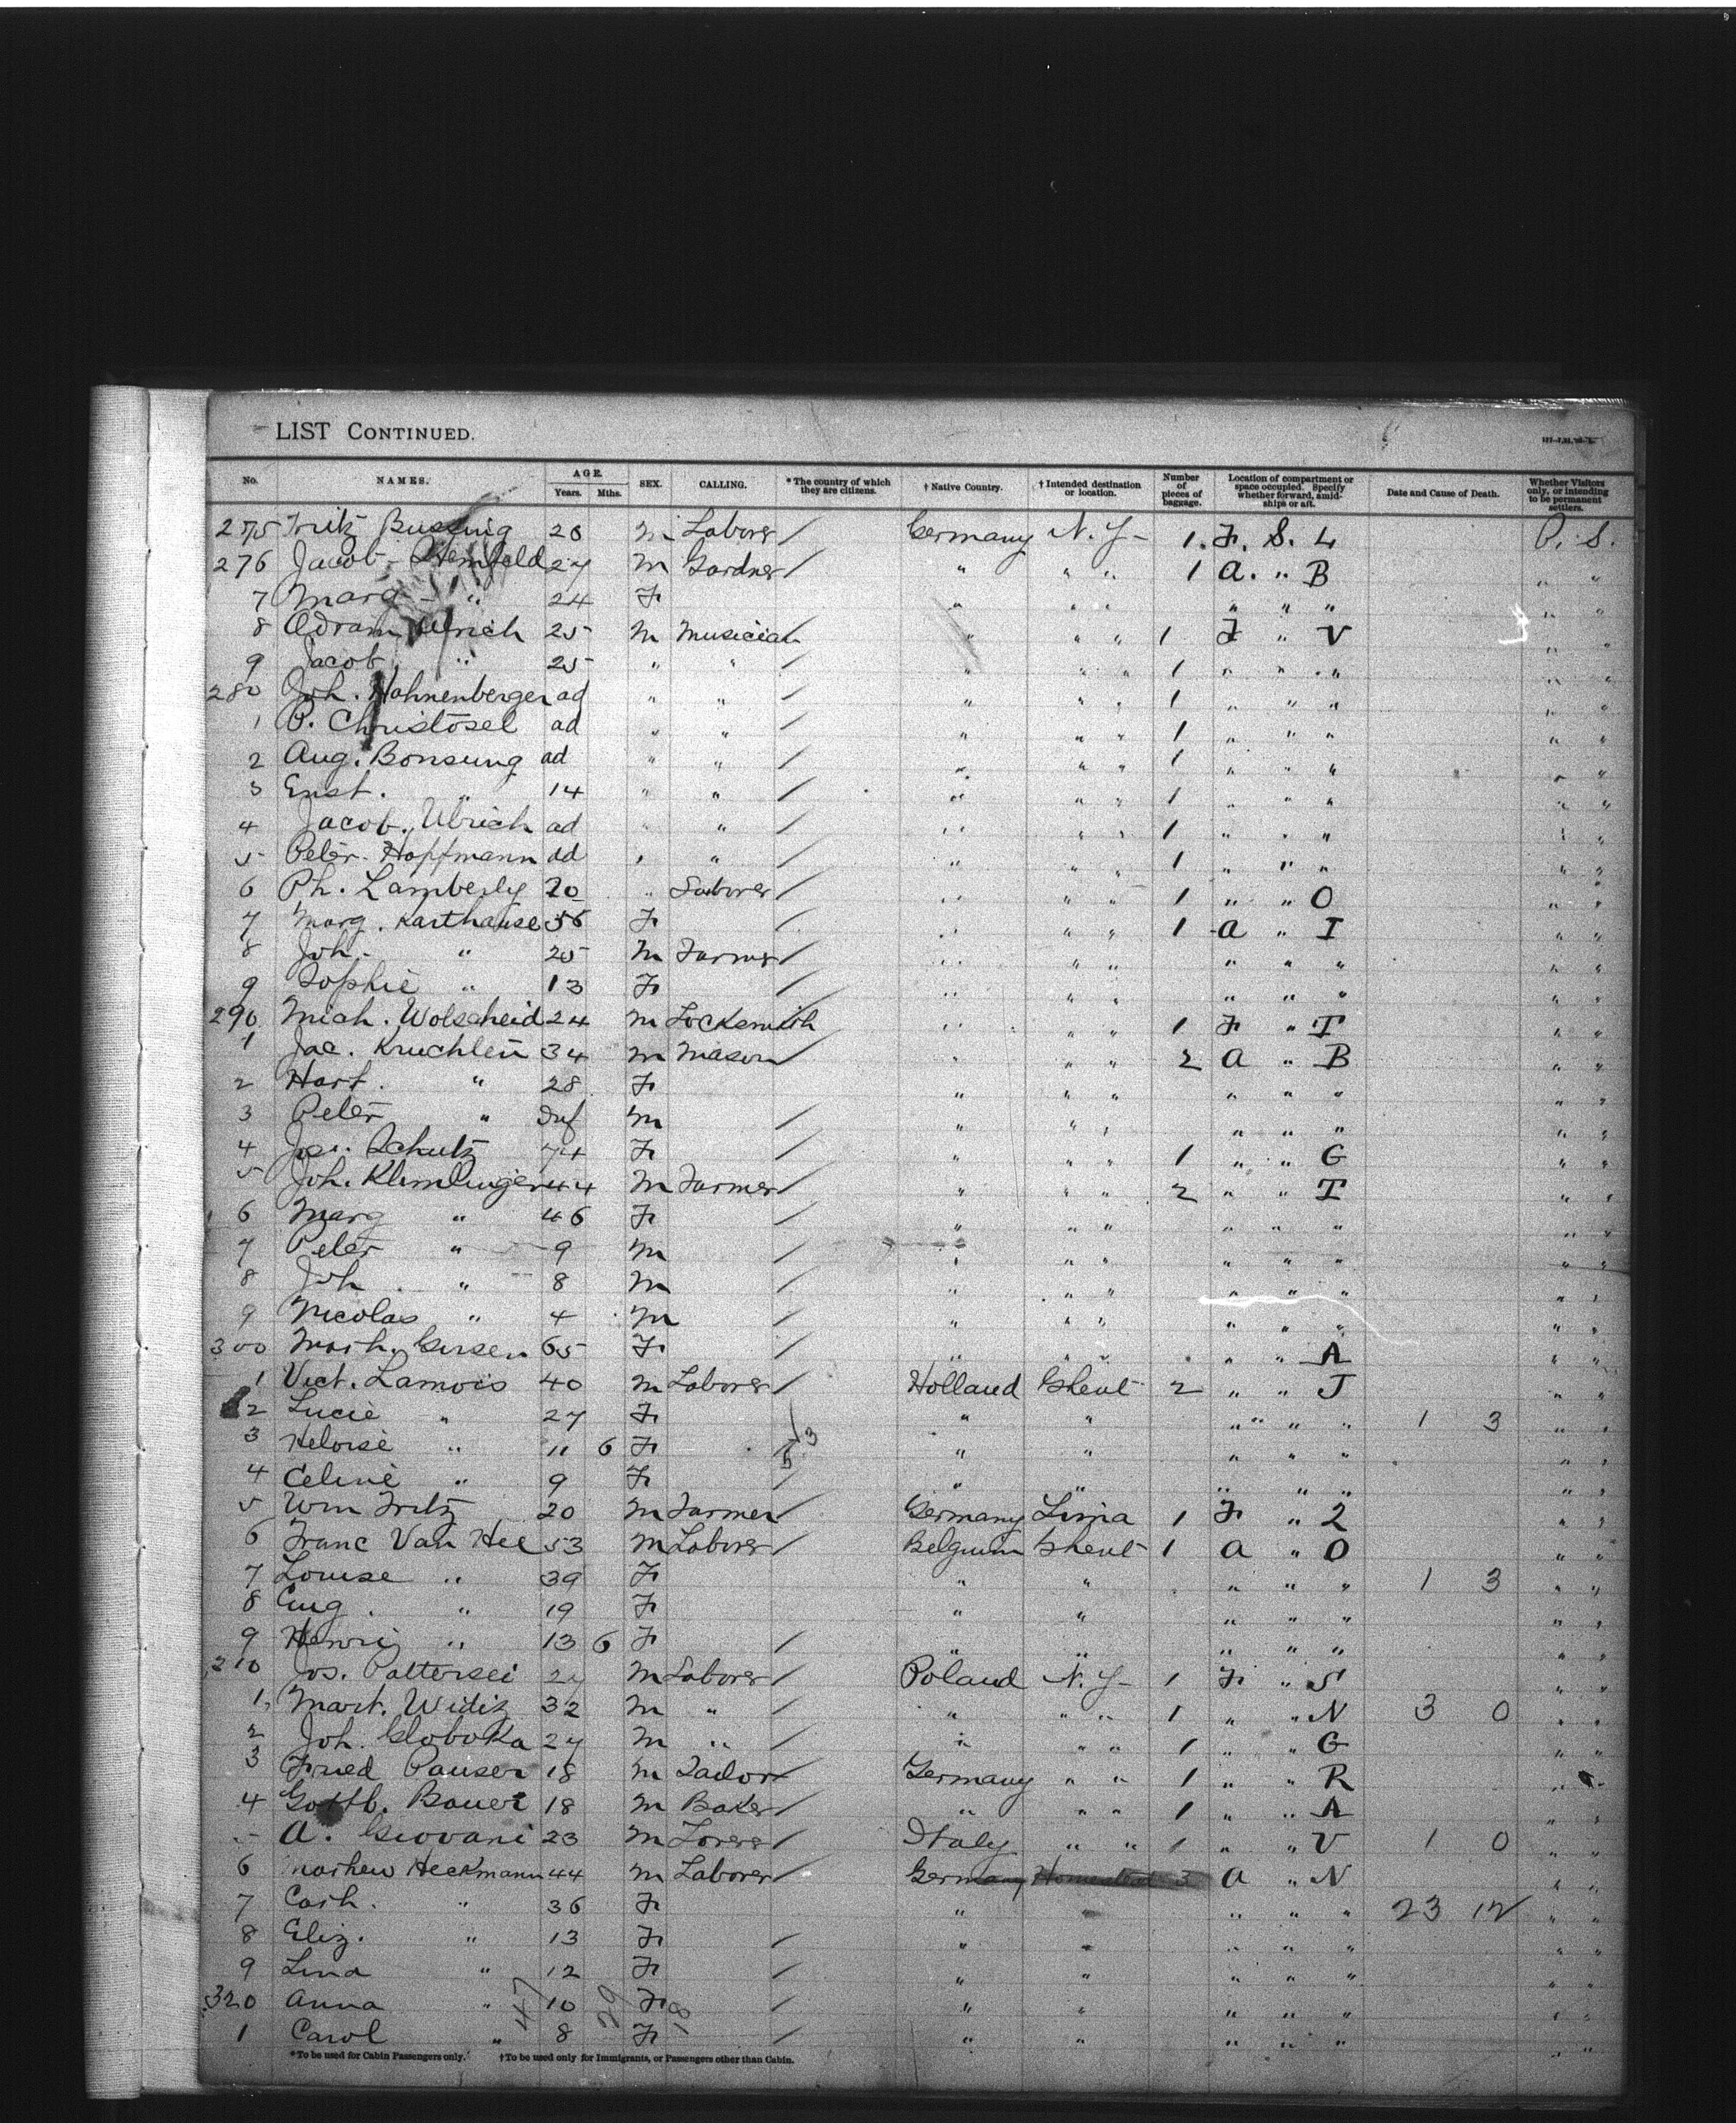 LIST CONTINUED.
No. NAMES. AGE. Years. Mths. SEX. CALLING. * The country of which they are citizens. † Native Country. † Intended destination or location. Number of pieces of baggage. Location of compartment or space occupied. Specify whether forward, amidships or aft. Date and Cause of Death. Whether Visitors only, or intending to be permanent settlers.
275 Fritz 20 m Laborer / Germany N. Y- 1. F. S. L P. S.
276 Jacob 27 m Gardner / " " " 1 A. " B " "
7 Marg - " 24 F " " " " " " " "
8 Adram Ulrich 25 m Musician " " " 1 F " V " "
9 Jacob " 25 " " / " " " 1 " " " " "
280 Joh. Hahnenberger ad " " / " " " 1 " " " " "
1 P. Christösel ad " " / " " " 1 " " " " "
2 Aug. Bonsung ad " " / " " " 1 " " " " "
3 Enst. " 14 " " / " " " 1 " " " " "
4 Jacob. Ulrich ad " " / " " " 1 " " " " "
5 Peter Hoffmann ad " " / " " " 1 " " " " "
6 Ph. Lamberly 20 " Laborer / " " " 1 " " O " "
7 Marg. Karthause 56 F / " " " 1 a " I " "
8 Joh. " 25 m Farmer / " " " " " " " "
9 Sophie " 13 F / " " " " " " " "
290 Mich. Wolscheid 24 m Locksmith " " " 1 F " T " "
1 Jac. Kruchten 34 m Mason / " " " 2 a " B " "
2 " 28 F " " " " " " " "
3 Peter " Inf m / " " " " " " " "
4 Jos. Schutz 74 F / " " " 1 " " G " "
5 Joh. Klimlinger 44 m Farmer / " " " 2 " " T " "
6 Marg " 46 F / " " " " " " " "
7 Peter " 9 m / " " " " " " " "
8 Joh " 8 m / " " " " " " " "
9 Nicolas " 4 m / " " " " " " " "
300 Girsen 65 F / " " " " " A " "
1 Vict. Lamois 40 m Laborer / Holland Ghent 2 " " J " "
2 Lucie " 27 F " " " " " 1 3 " "
3 Heloise " 11 6 F " " " " " " "
4 Celine " 9 F / " " " " " " "
5 Wm Fritz 20 m Farmer / Germany Lima 1 F " 2 " "
6 Franc Van Hee 53 m Laborer / Belgium Ghent 1 a " O " "
7 Louise " 39 F " " " " " 1 3 " "
8 Eug. " 19 F " " " " " " "
9 Henriz " 13 6 F / " " " " " " "
310 Jos. Pattersei 27 m Laborer / Poland N. Y- 1 F " S " "
1 Mart. Widiz 32 m " / " " " 1 " " N 3 0 " "
2 Joh. Globoka 27 m " / " " " 1 " " G " "
3 Fried Pauser 18 m Tailor / Germany " " 1 " " R " "
4 Gottb. Bauer 18 m Baker / " " " 1 " " A " "
5 A. Giovani 23 m / Italy " " 1 " " V 1 0 " "
6 Heckmann 44 m Laborer / Germany Homestead 3 a " N " "
7 Cath. " 36 F " " " " " 23 12 " "
8 Eliz. " 13 F / " " " " " " "
9 Lina " 12 F / " " " " " " "
320 Anna " 10 F / " " " " " " "
1 Carol " 8 F / " " " " " " "
47 29 18
*To be used for Cabin Passengers only. †To be used only for Immigrants, or Passengers other than Cabin.